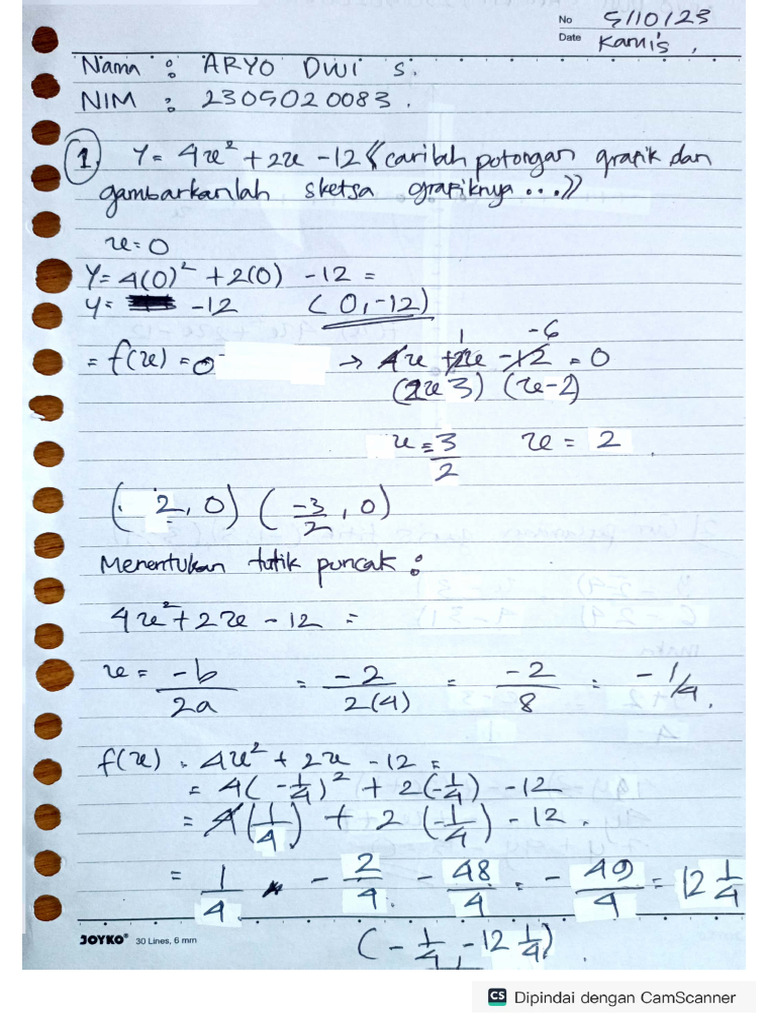 No 5/10/23
Date Kamis,
Nama : ARYO DWI S.
NIM : 2305020083.
1. Y = 4x² + 2x - 12 《carilah potongan grafik dan
gambarkanlah sketsa grafiknya ...》
x = 0
Y = 4(0)² + 2(0) - 12 =
y = -12 (0, -12)
1 -6
= f(x) = 0 → 4x + 2x - 12 = 0
(2x 3) (x-2)
x = 3/2 x = 2
( 2, 0) (-3/2, 0)
Menentukan titik puncak :
4x² + 2x - 12 =
x = -b/2a = -2/2(4) = -2/8 = -1/4.
f(x) = 4x² + 2x - 12 =
= 4(-1/4)² + 2(-1/4) - 12
= 4(1/4) + 2(-1/4) - 12.
= 1/4 - 2/4 - 48/4 = - 49/4 = 12 1/4
(-1/4, -12 1/4).
JOYKO® 30 Lines, 6 mm
CS Dipindai dengan CamScanner